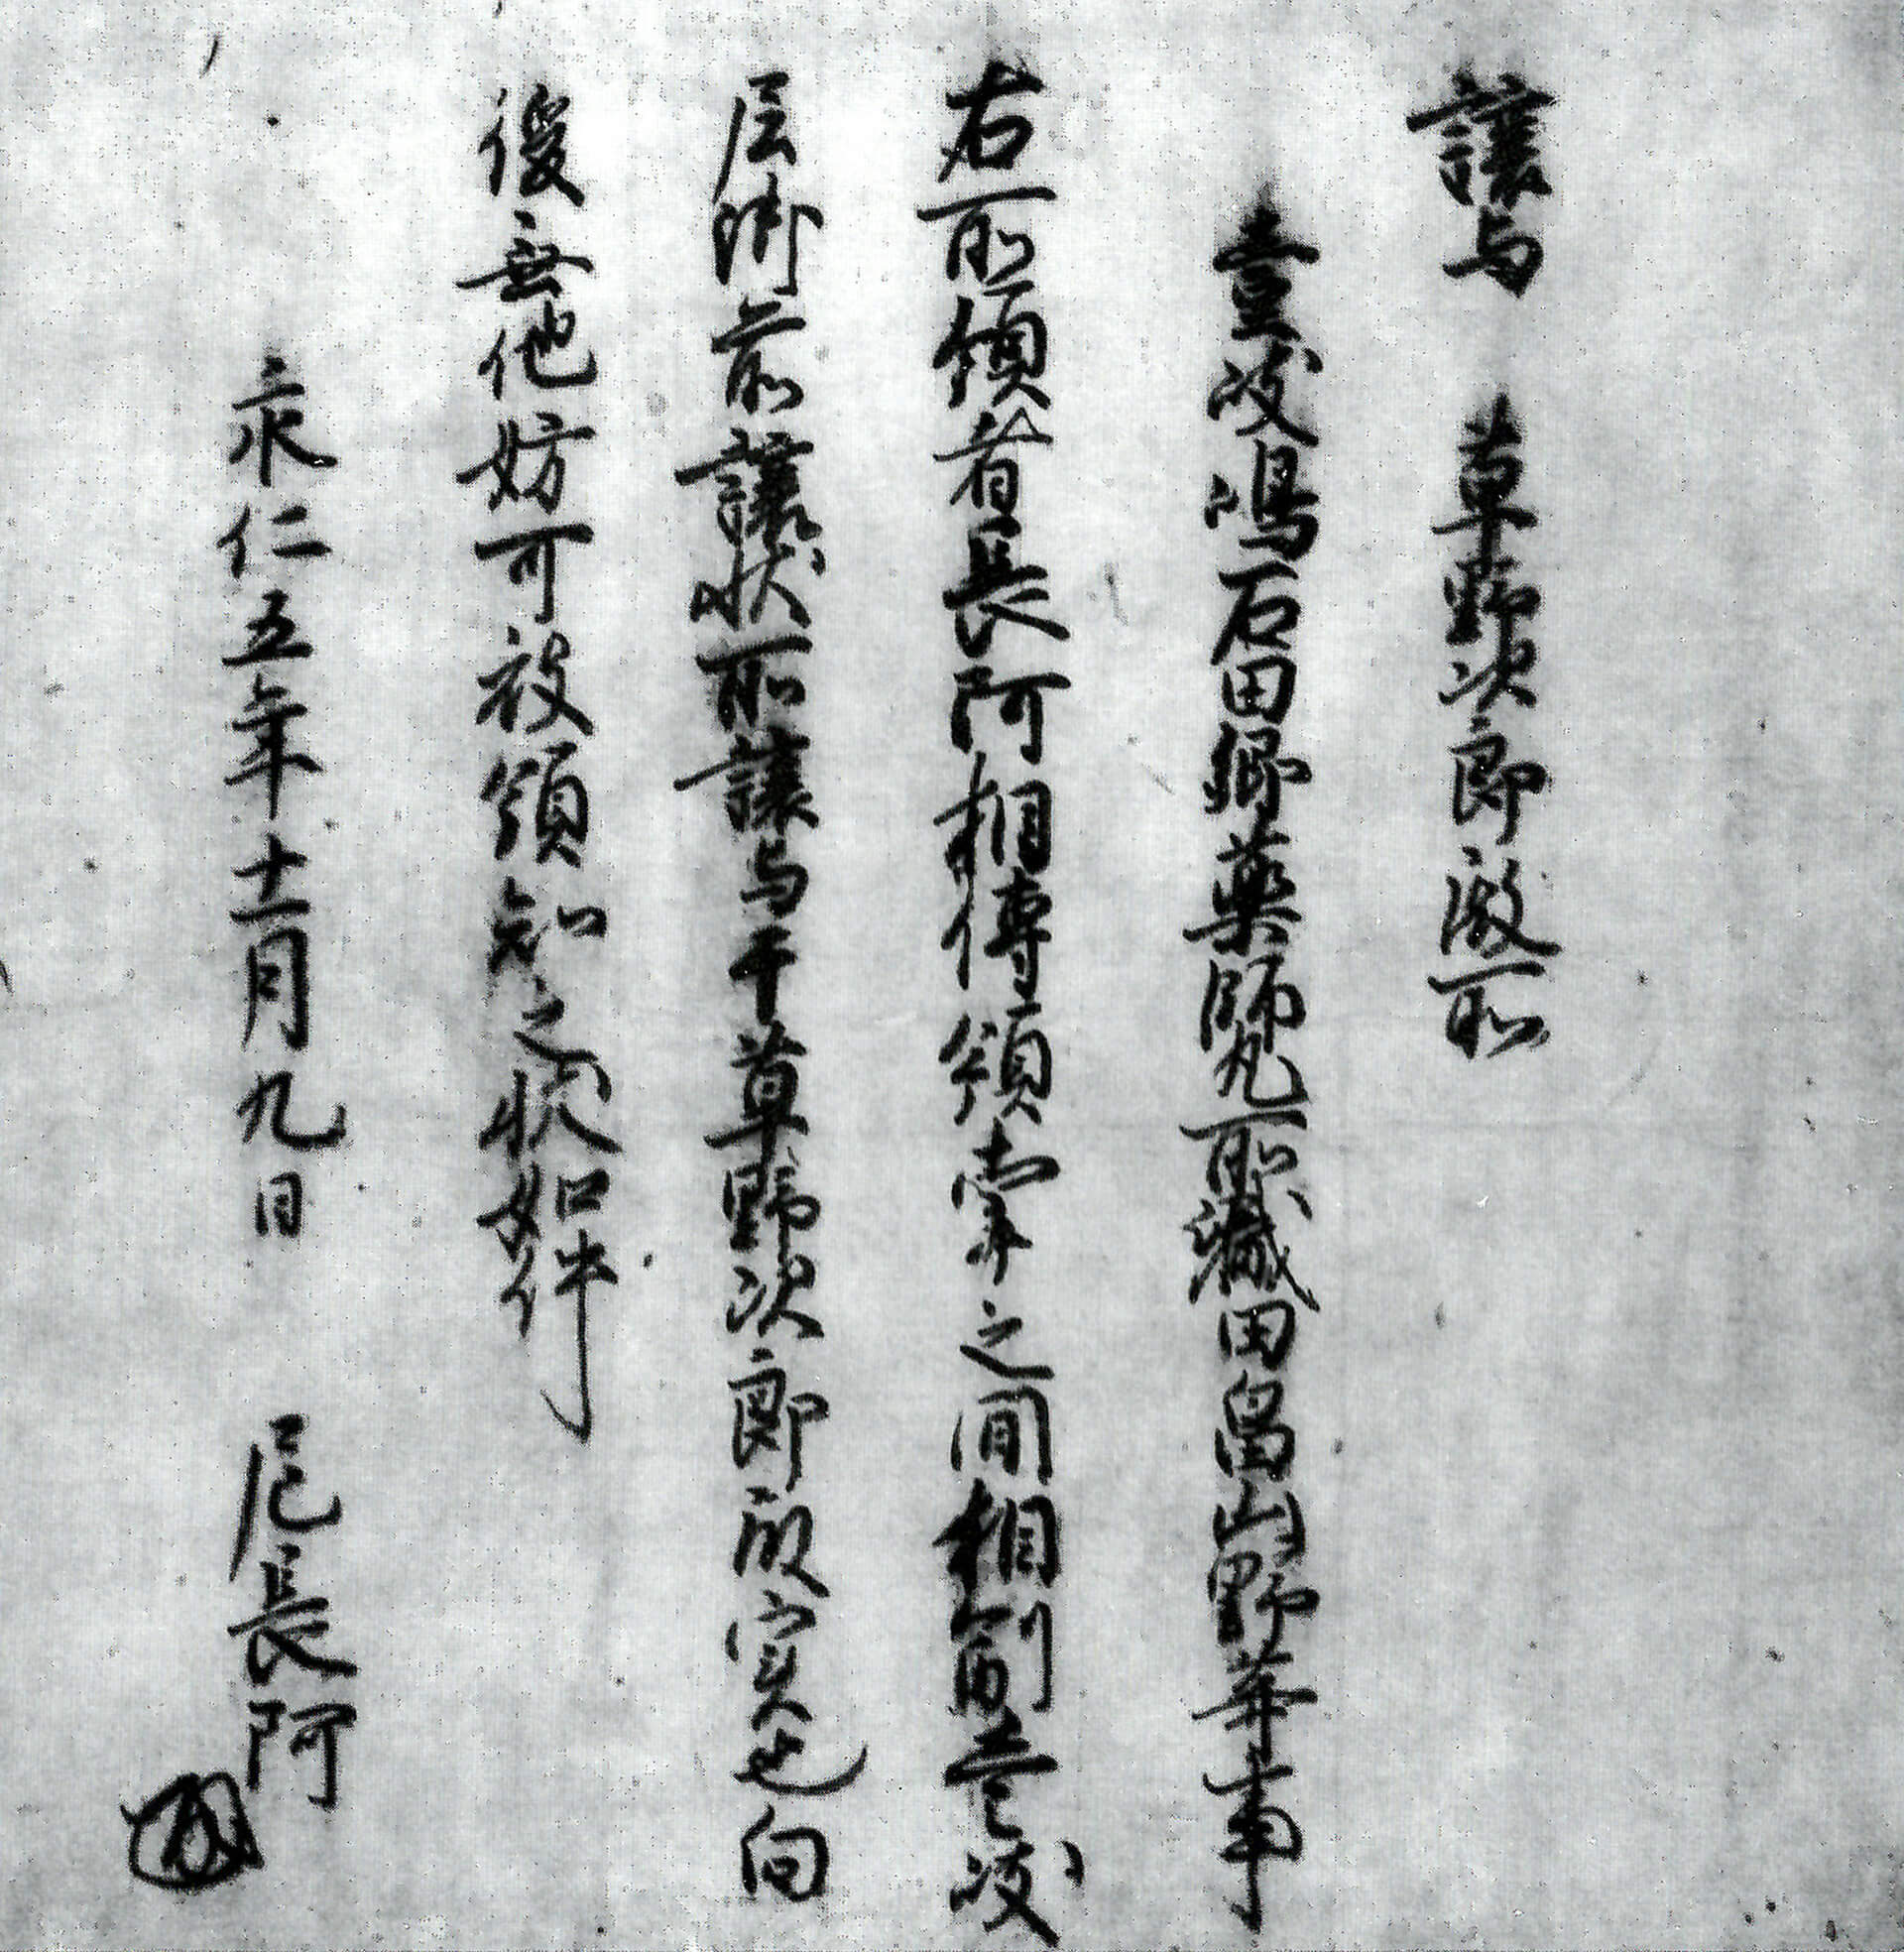 讓与　草野次郎殿所
壹岐嶋石田郷薬師丸所職田畠山野等事
右所領者長阿相傳領掌之間相副壱岐
尼御前讓状所讓与于草野次郎殿実也向
後無他妨可被領知之状如件
永仁五年十一月九日　尼長阿